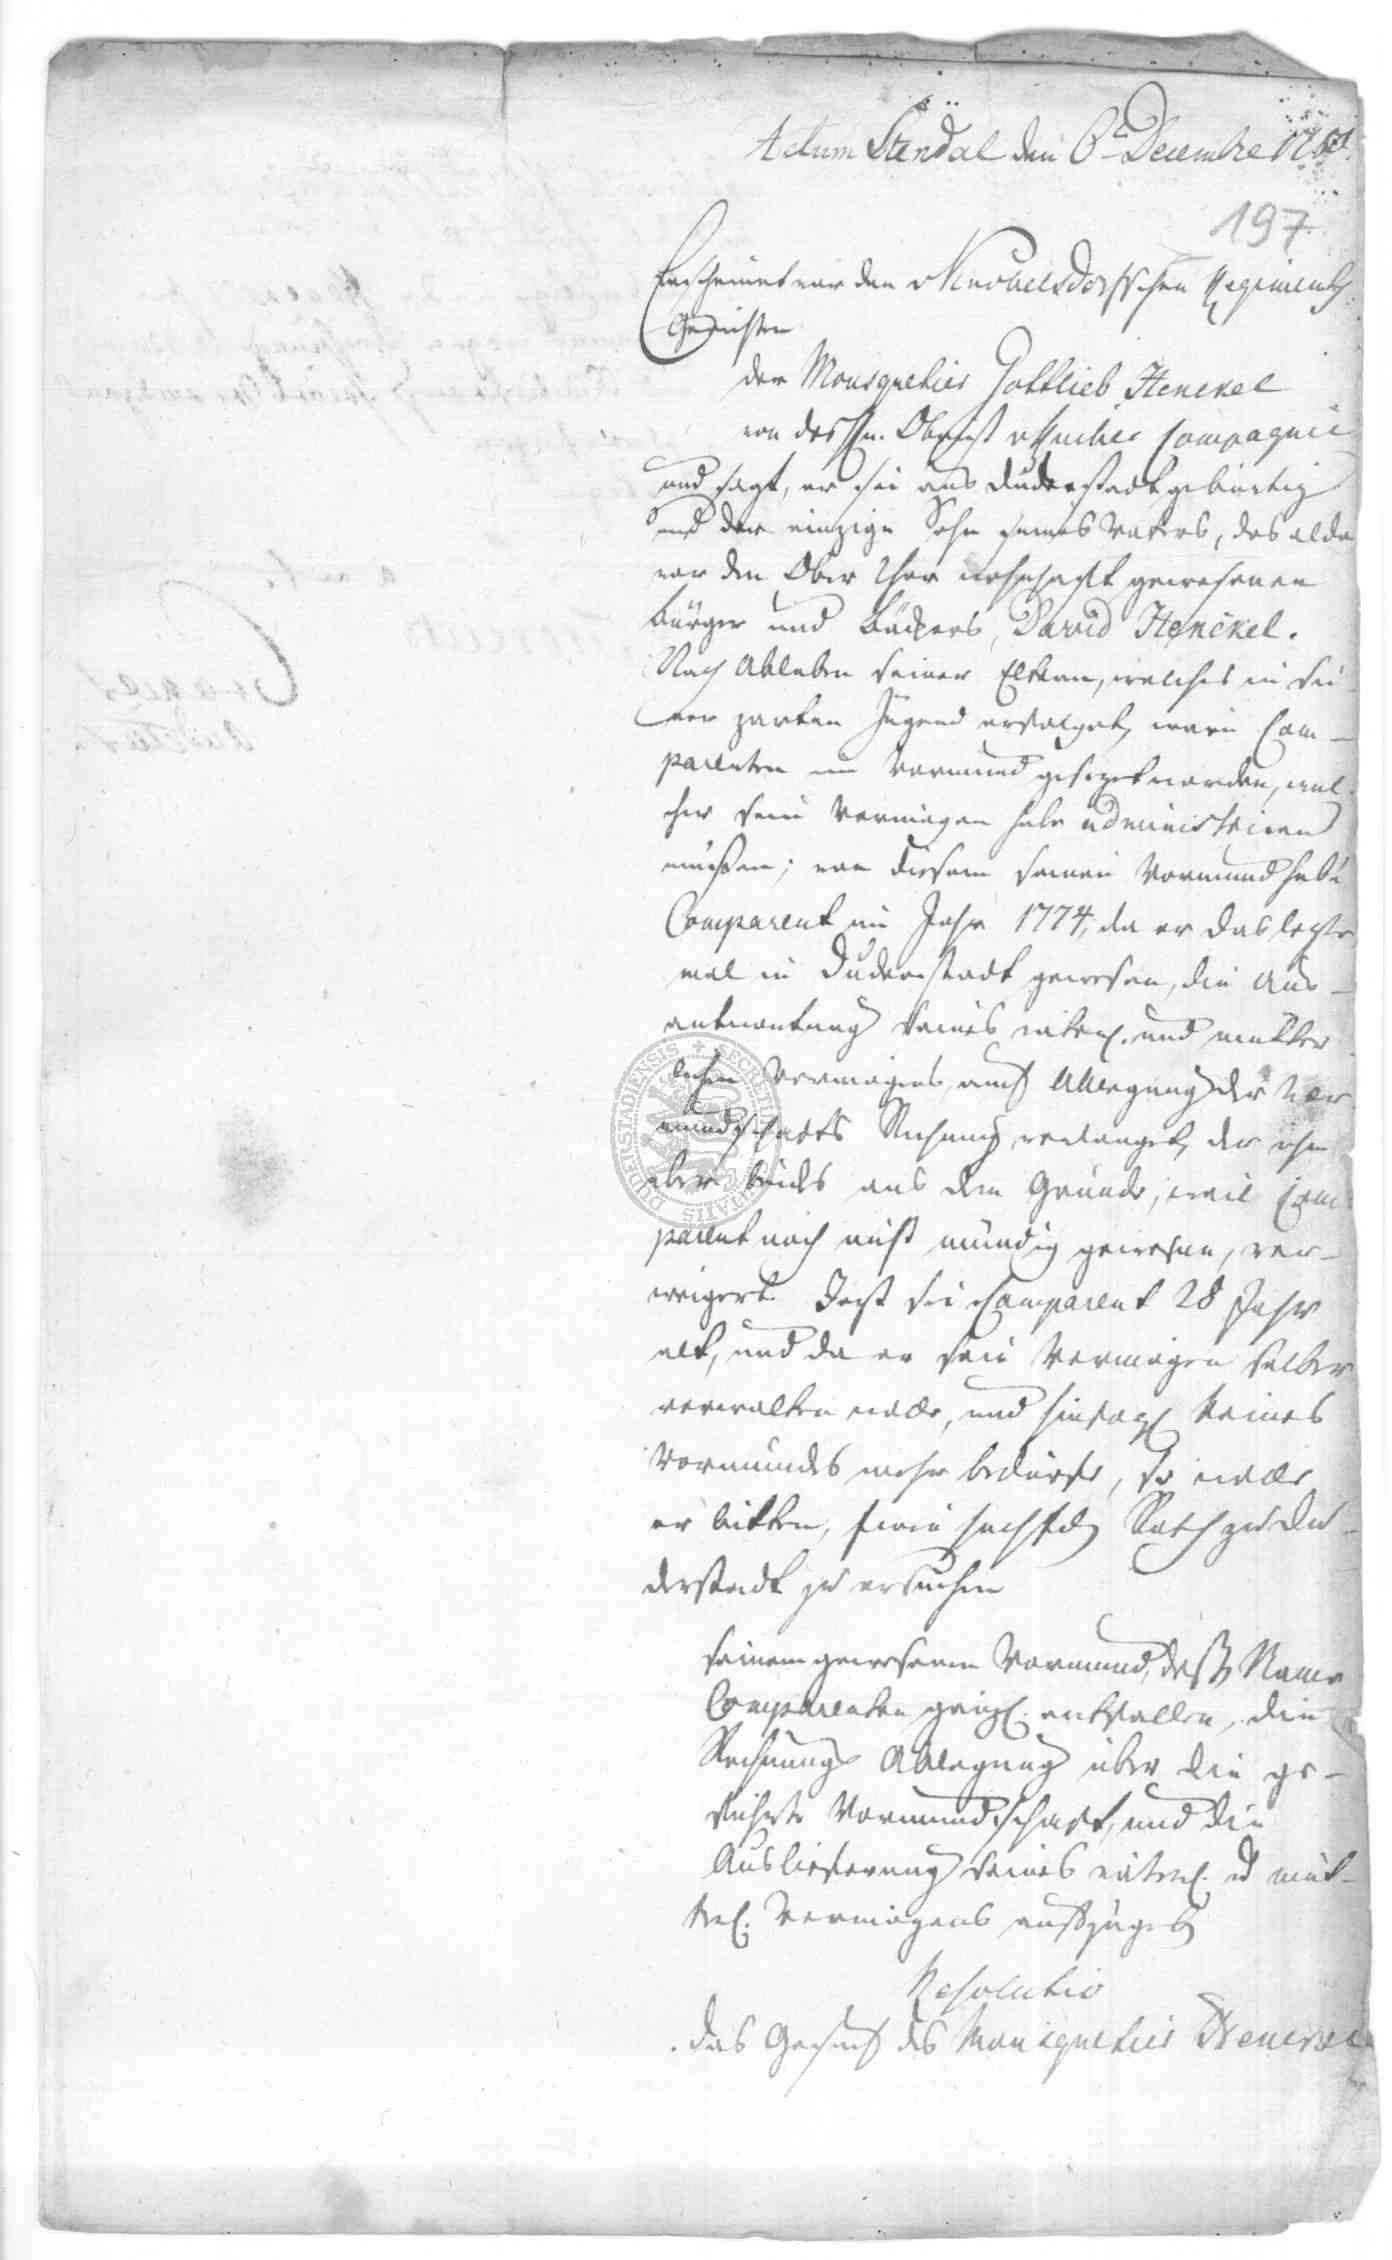 Actum Stendal den 6ten Decembre
197
Erscheinet vor den v Knobelsdorffschen Regiments
Gerichten
der Mousquetier Gottlieb Henckel
von des Hn. Obrist Compagnie
und sagt, er sei aus Duderstadt gebürtig
und der einzige Sohn seines Vaters, des alda
vor den Ober Thor wohnhafft gewesenen
Bürger und Bäckers, David Henckel.
Nach Ableben seiner Eltern, welches in sei-
ner zarten Jugend erfolget, wäre Com-
parenten ein Vormund gesezet worden, wel-
cher sein Vermögen habe administriren
müßen; von diesem seinen Vormund habe
Comparent im Jahr 1774, da er das lezte
mal in Duderstadt gewesen, die Aus-
antwortung seines väterl. und mütter
lichen Vermögens auch Ablegung der Vor
mundschafts Rechnung verlanget, der ihm
aber beides aus dem Grunde, weil Com
parent noch nicht mündig gewesen, ver-
weigert. Jezt sei Comparent 28 Jahr
alt, und da er sein Vermögen selber
verwalten wolle, und hinfolgl. keines
Vormundes mehr bedürfe, so wolle
er bitten, einen Rath zu Du-
derstadt zu ersuchen
seinem gewesenen Vormund, deßen Name
Comparenten gänzl. entfallen, die
Rechnungs Ablegung über die ge-
führte Vormundschaft, und die
Auslieferung seines väterl. u müt-
terl. Vermögens aufzugeben
Resolutio
Das Gesuch des Mousquetier Henckel
SECRETUM CIVITATIS DUDERSTADENSIS